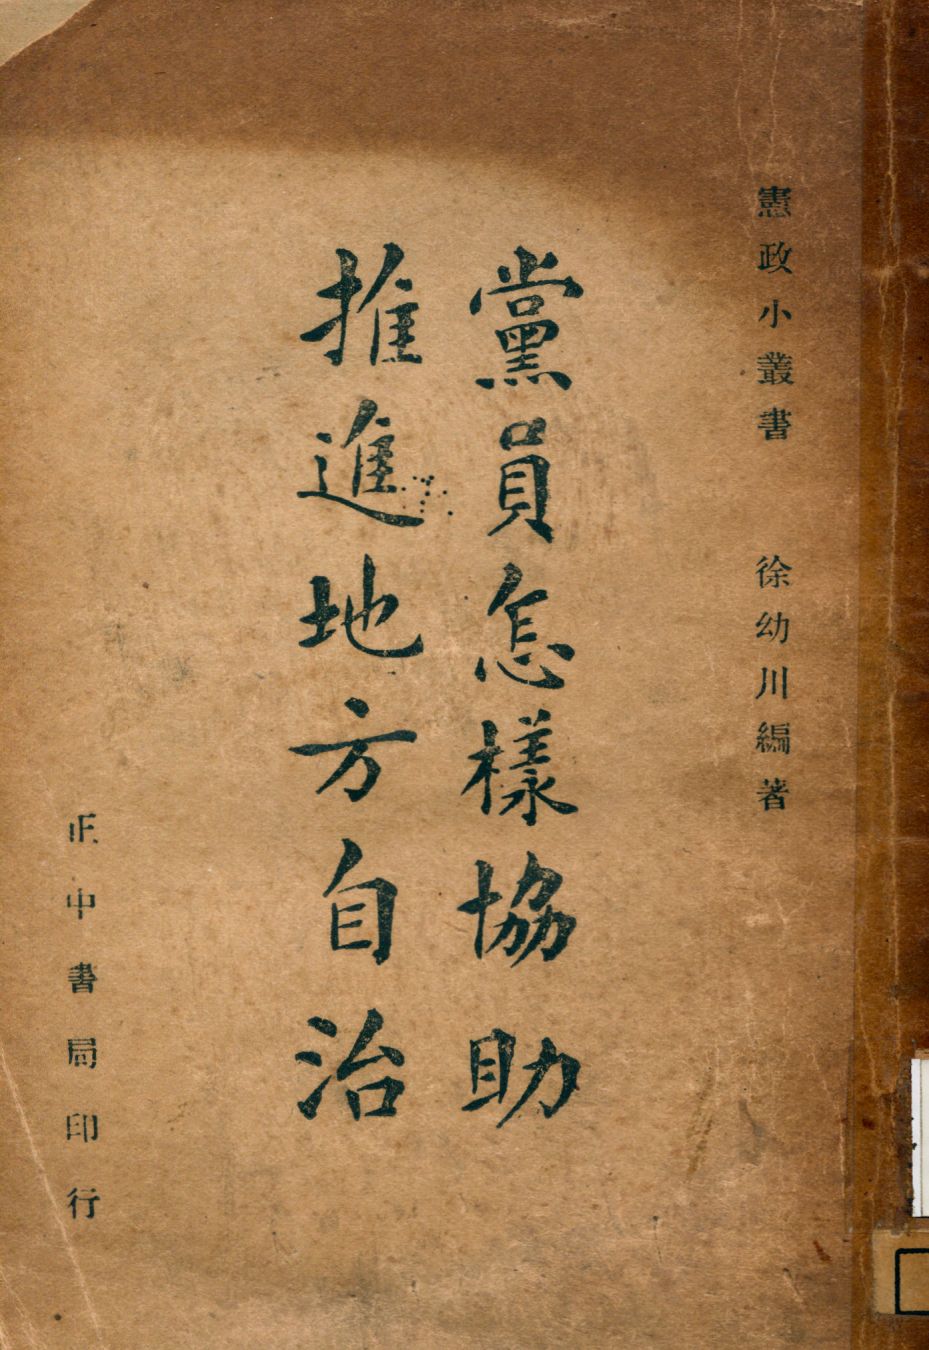 憲政小叢書　徐幼川編著
黨員怎樣協助
推進地方自治
正中書局印行